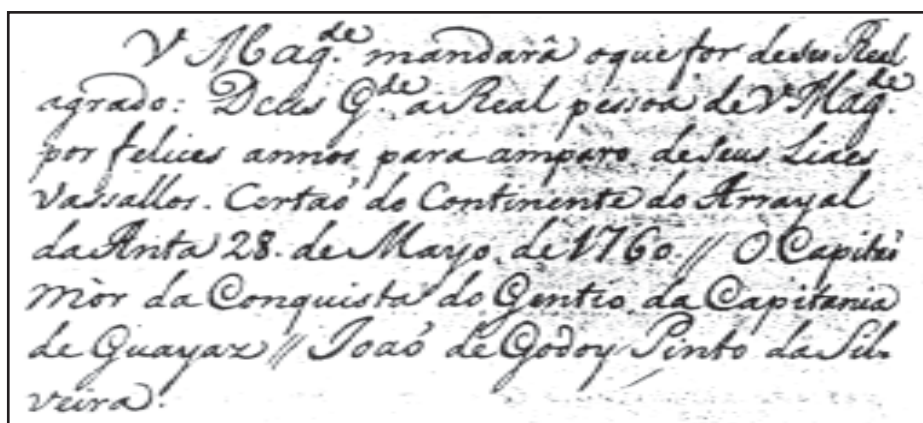 V Mag.de mandarâ oque for deseu Real
agrado: Deus G.de a Real pessoa de V Mag.de
por felices annos para amparo de seus Liaes
Vassallos. Certaõ do Continente do Arrayal
da Anta 28. de Mayo de 1760. // O Capitaõ
Mòr da Conquista do Gentio da Capitania
de Guayaz // Joaõ de Godoy Pinto da Sil-
veira.